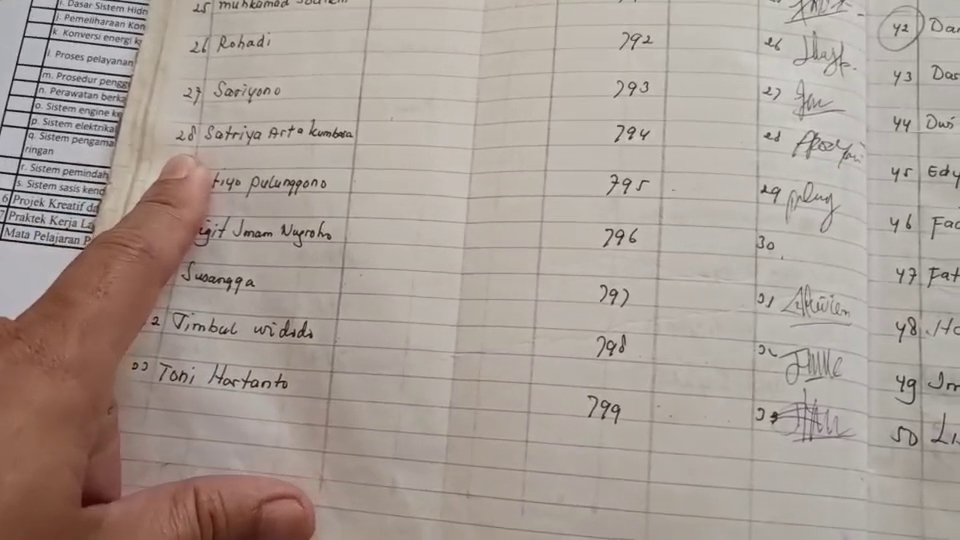 i. Dasar Sistem Hidr
j. Pemeliharaan Kon
k. Konversi energi k
l. Proses pelayanan
m. Prosedur pengg
n. Perawatan berka
o. Sistem engine k
p. Sistem elektrika
q. Sistem pengama
ringan
r. Sistem pemindah
s. Sistem sasis kend
6 Projek Kreatif da
7 Praktek Kerja La
Mata Pelajaran P
25
26 Rohadi 792 26
27 Sariyono 793 27
28 Satriya Arta Kumbara 794 28
tiyo pulunggono 795 29
igit Imam Nugroho 796 30
Susangga 797 31
2 Timbul widodo 798 32
33 Toni Hartanto 799 33
42 Da
43 Das
44 Dwi
45 Edy
46 Fa
47 Fat
48. Ha
49 Im
50 Li